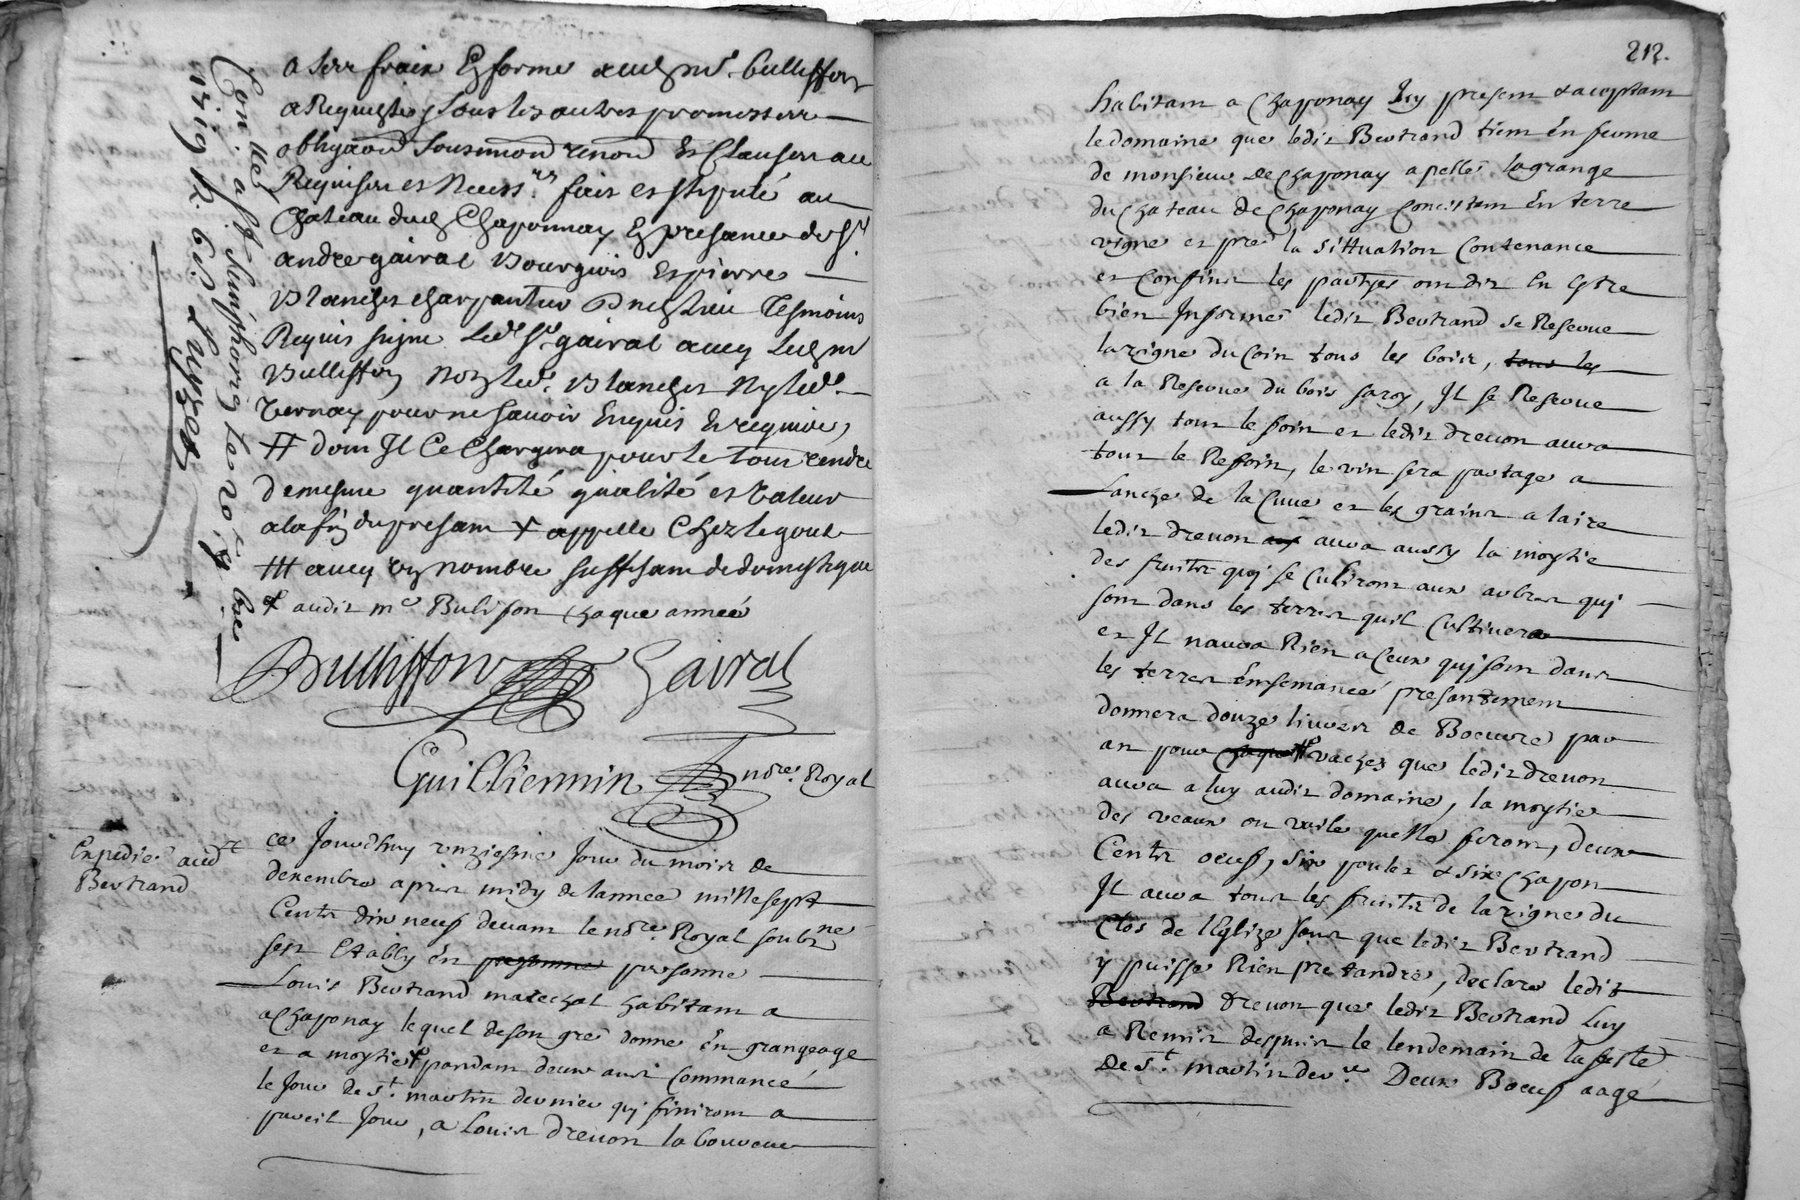 a ses fraix Et forme aud me. Bullioffon
a Requeste, sous les autres promesses
obligaon soumission renon Et Clauses au
Requises et Necess.res fait et stipulé au
Chateau dud Chaponnay En presance de Sr.
andre gairal Bourgeois Et pierre
Blanchet charpantier Dud lieu Tesmoins
Requis signe Led. Sr. gairal avec Led me
Bulliffon, non led. Blanchet Ny led.
Vernay pour ne savoir Enquis Et requis,
# dont Il Ce Chargera pour le tout rendre
de mesme quantité qualité et Valeur
a la fin du presam + appelle Chez le gout
### avec un nombre suffisam de domestique
# audit me Bulifon chaque année
Con.llé a St Simphorien le 20 xbre
1719 R. 6 s. Duguet
Bulliffon Gairal
Guilliermin nore. Royal
Expedié aud
Bertrand
ce Jourdhuy unziesme Jour du mois de
dexembre apres midy de lannee mille sept
Cents dix neuf devam le nore. Royal soubz.ne
sest Etably En personne personne
Louis Bertrand marechal habitam a
a Chaponay lequel de son gré donne En grangeage
et a moytie # pandam deux ans Commancé
le Jour de St. martin dernier qui finirom a
pareil Jour, a Louis drevon laboureur
212.
habitam a Chaponay Icy presem & aceptam
le domaine que ledit Bertrand tiem En ferme
de monsieur de Chaponay apellé lagrange
du Chateau de Chaponay Concistam En terre
vigne et pré la sittuation Contenance
et Confins les partyes ont dit En Estre
bien Informes ledit Bertrand se Reserve
la vigne du Coin tous les bois, tous les
a la Reserve du bois saroy, Il se Reserve
aussy tout le foin et ledit drevon aura
tout le Reffoin, le vin sera partage a
Lanche de la Cuve et les grains a laire
ledit drevon aura aussy la moytie
des fruits quy se Culiront aux arbres quj
sont dans les terres quil Cultivera
et Il naura Rien a Ceux quj sont dans
les terres Ensemancé presantement
donnera douze livres de Boeurre par
an pour chaque # vaches que ledit drevon
aura a luy audit domaine, la moytie
des veaux ou vaile quelle feront, deux
Cents oeufs, six poules & six Chapon
Il aura tous les fruits de la vigne du
Clos de lEglize sans que ledit Bertrand
y puisse Rien pretandre, declare ledit
Bertrand drevon que ledit Bertrand Luy
a Remis despuis le lendemain de la feste
de St. martin der.re Deux Boeufs aagé